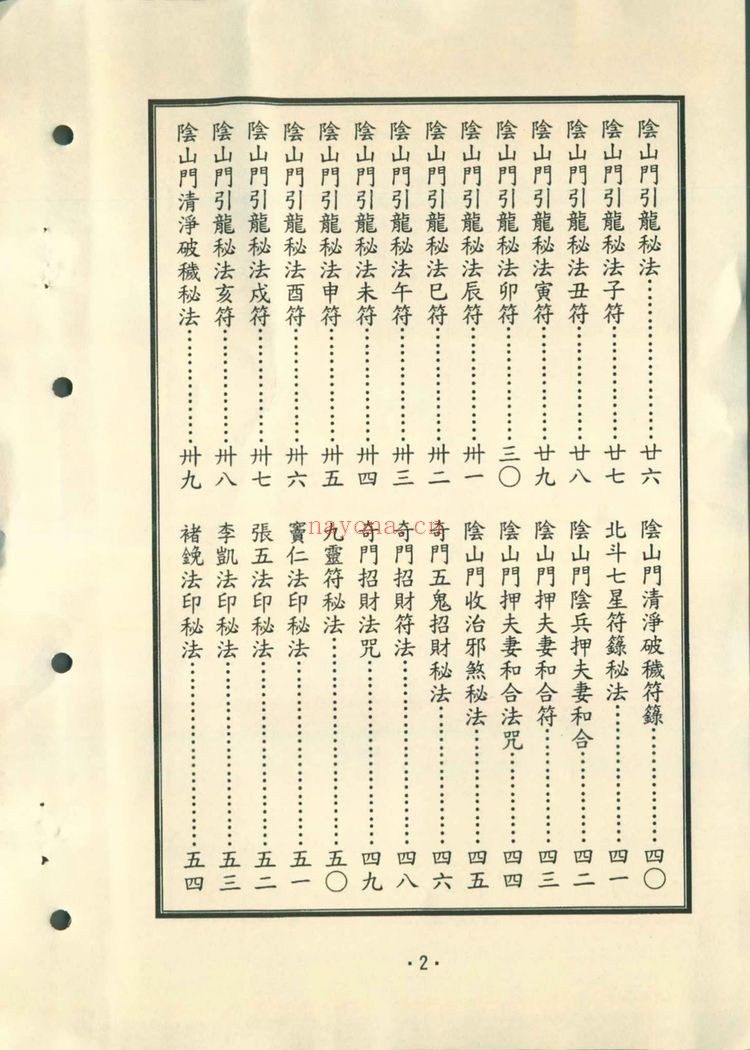 陰山門引龍秘法……………………廿六
陰山門引龍秘法子符………………廿七
陰山門引龍秘法丑符………………廿八
陰山門引龍秘法寅符………………廿九
陰山門引龍秘法卯符………………三〇
陰山門引龍秘法辰符………………卅一
陰山門引龍秘法巳符………………卅二
陰山門引龍秘法午符………………卅三
陰山門引龍秘法未符………………卅四
陰山門引龍秘法申符………………卅五
陰山門引龍秘法酉符………………卅六
陰山門引龍秘法戍符………………卅七
陰山門引龍秘法亥符………………卅八
陰山門清淨破穢秘法………………卅九
陰山門清淨破穢符籙………………四〇
北斗七星符籙秘法…………………四一
陰山門陰兵押夫妻和合……………四二
陰山門押夫妻和合符………………四三
陰山門押夫妻和合法咒……………四四
陰山門收治邪煞秘法………………四五
奇門五鬼招財秘法…………………四六
奇門招財符法………………………四八
奇門招財法咒………………………四九
九靈符秘法…………………………五〇
竇仁法印秘法………………………五一
張五法印秘法………………………五二
李凱法印秘法………………………五三
褚鋔法印秘法………………………五四
nayona.cn
·2·